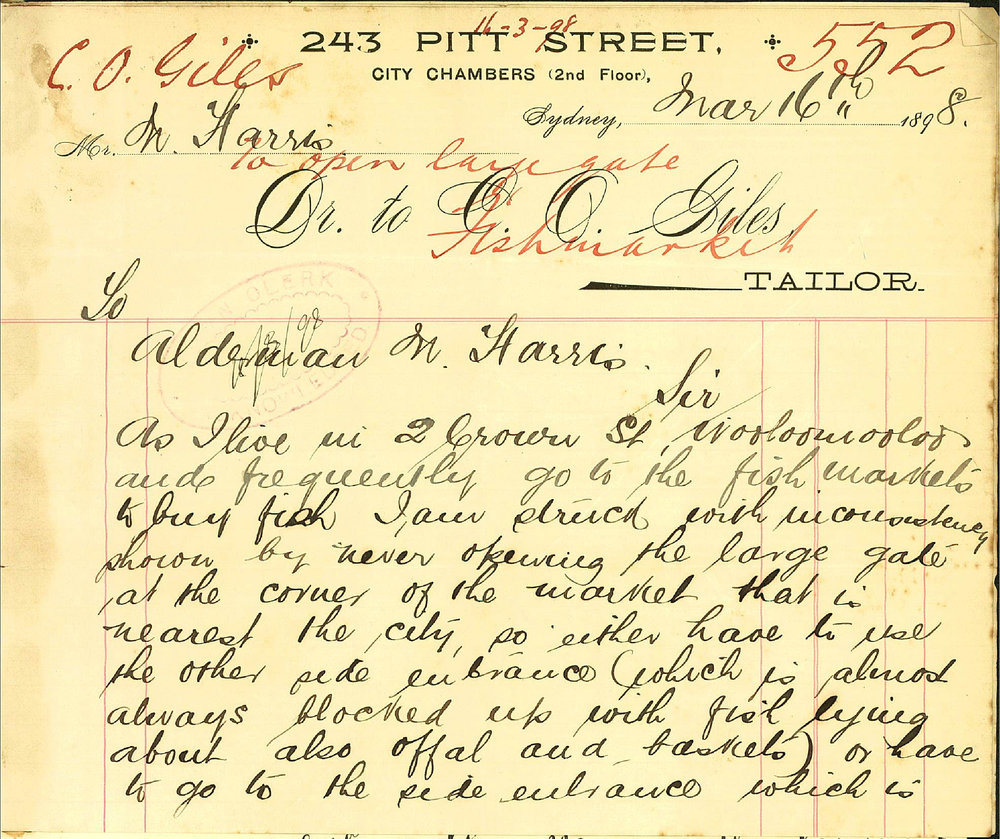 16-3-98
243 PITT STREET,
C. O. Giles
552
CITY CHAMBERS (2nd Floor),
Sydney, Mar 16th 1898.
Mr. M. Harris
to open large gate
Dr. to C. O. Giles,
Fishmarket
TAILOR.
To
CLERK
Alderman M. Harris.
Sir
As I live in 2 Crown St, Wooloomooloo
and frequently go to the fish markets
to buy fish I am struck with inconsistency
shown by never opening the large gate
at the corner of the market that is
nearest the city, so either have to use
the other side entrance (which is almost
always blocked up with fish lying
about also offal and baskets) or have
to go to the side entrance which is